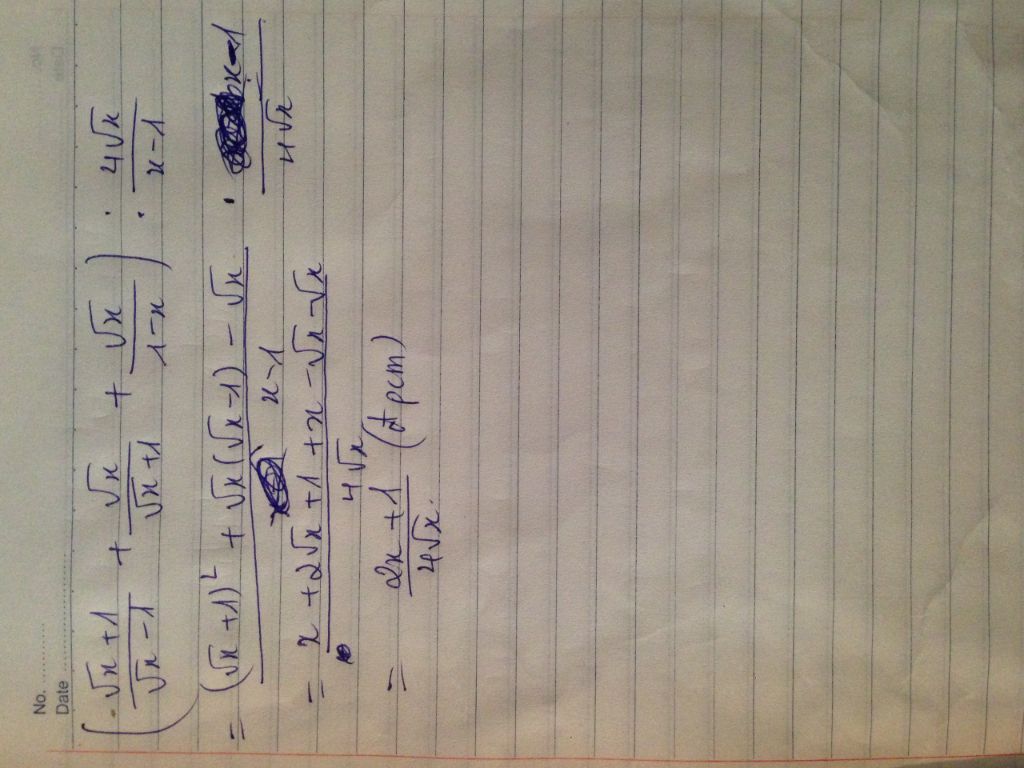 No. ............
Date ............
(√x + 1)/(√x − 1) + √x/(√x + 1) + √x/(1 − x)) : 4√x/(x − 1)
= ((√x + 1)² + √x(√x − 1) − √x)/(x − 1) · (x − 1)/(4√x)
= (x + 2√x + 1 + x − √x − √x)/(4√x)
= (2x + 1)/(4√x)